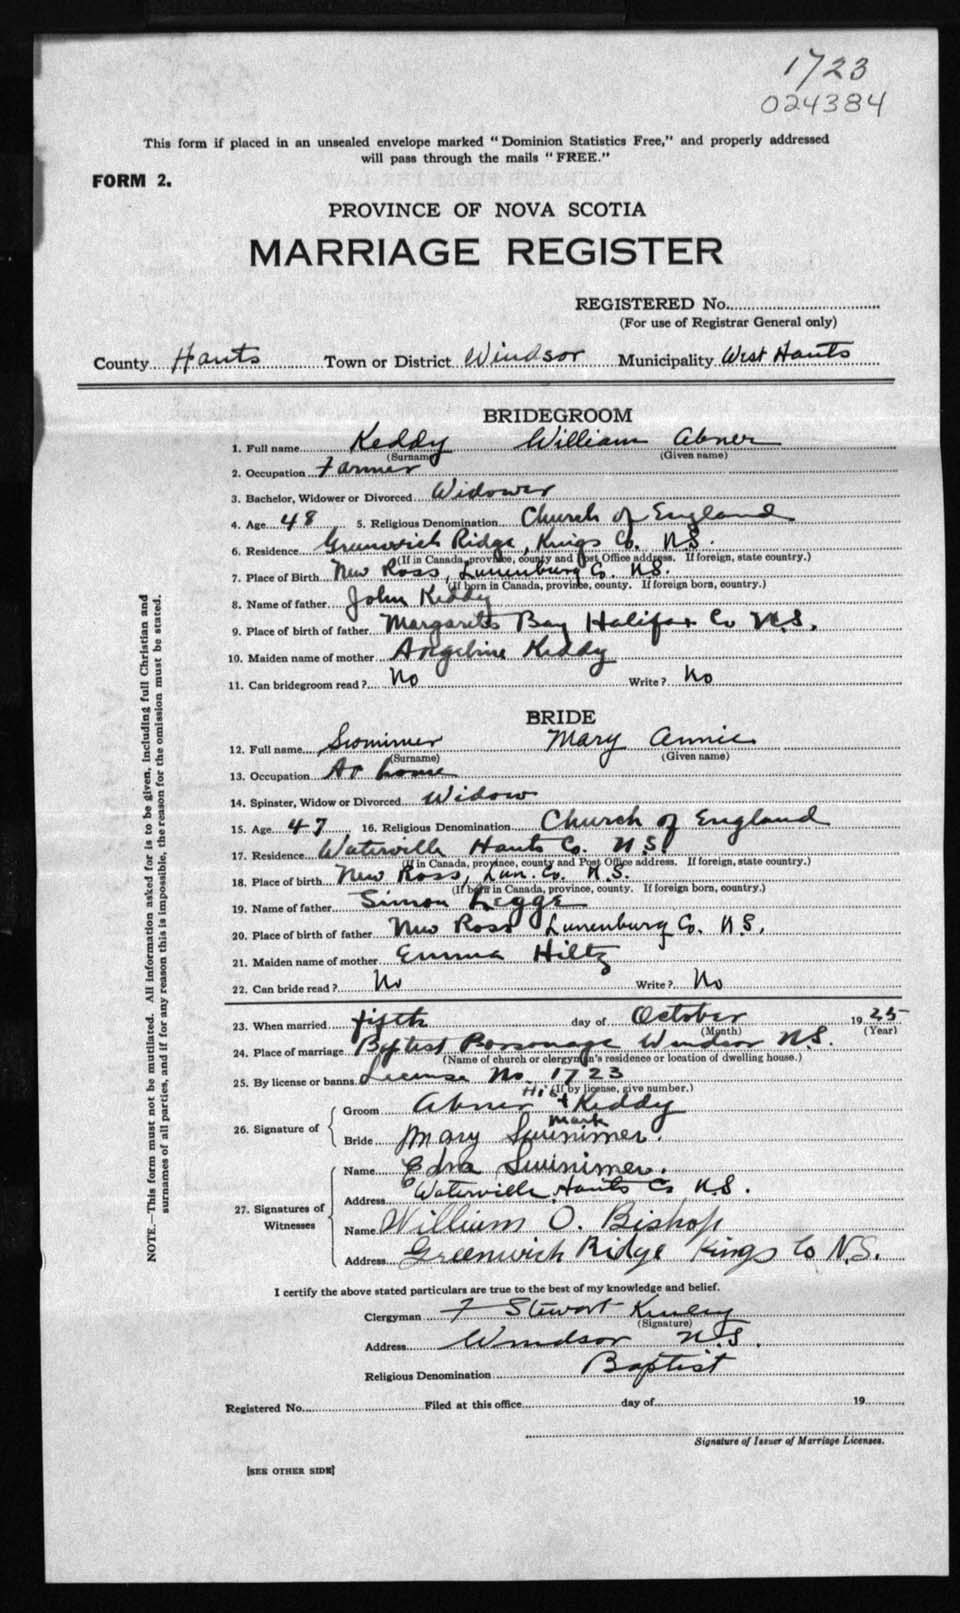 1723
024384
This form if placed in an unsealed envelope marked "Dominion Statistics Free," and properly addressed
will pass through the mails "FREE."
FORM 2.
PROVINCE OF NOVA SCOTIA
MARRIAGE REGISTER
REGISTERED No.
(For use of Registrar General only)
County Hants Town or District Windsor Municipality West Hants
BRIDEGROOM
1. Full name Keddy William Abner
(Surname) (Given name)
2. Occupation Farmer
3. Bachelor, Widower or Divorced Widower
4. Age 48 5. Religious Denomination Church of England
6. Residence Greenwich Ridge, Kings Co. N.S.
(If in Canada, province, county and Post Office address. If foreign, state country.)
7. Place of Birth New Ross, Lunenburg Co. N.S.
(If born in Canada, province, county. If foreign born, country.)
8. Name of father John Keddy
9. Place of birth of father Margarets Bay Halifax Co N.S.
10. Maiden name of mother Angeline Keddy
11. Can bridegroom read? No Write? No
BRIDE
12. Full name Swinimer Mary Annie
(Surname) (Given name)
13. Occupation At home
14. Spinster, Widow or Divorced Widow
15. Age 47 16. Religious Denomination Church of England
17. Residence Waterville Hants Co. N.S.
(If in Canada, province, county and Post Office address. If foreign, state country.)
18. Place of birth New Ross, Lun. Co. N.S.
(If born in Canada, province, county. If foreign born, country.)
19. Name of father Simon Legge
20. Place of birth of father New Ross Lunenburg Co. N.S.
21. Maiden name of mother Emma Hiltz
22. Can bride read? No Write? No
23. When married fifth day of October 1925
(Month) (Year)
24. Place of marriage Baptist Parsonage Windsor N.S.
(Name of church or clergyman's residence or location of dwelling house.)
25. By license or banns License No. 1723
(If by license, give number.)
His
26. Signature of Groom Abner + Keddy
mark
Bride Mary Swinimer.
27. Signatures of Witnesses Name Edna Swinimer.
Address Waterville, Hants Co N.S.
Name William O. Bishop
Address Greenwich Ridge Kings Co N.S.
I certify the above stated particulars are true to the best of my knowledge and belief.
Clergyman F Stewart Kinley
(Signature)
Address Windsor N.S.
Religious Denomination Baptist
Registered No. Filed at this office day of 19
Signature of Issuer of Marriage Licenses.
[SEE OTHER SIDE]
NOTE.—This form must not be mutilated. All information asked for is to be given, including full Christian and
surnames of all parties, and if for any reason this is impossible, the reason for the omission must be stated.